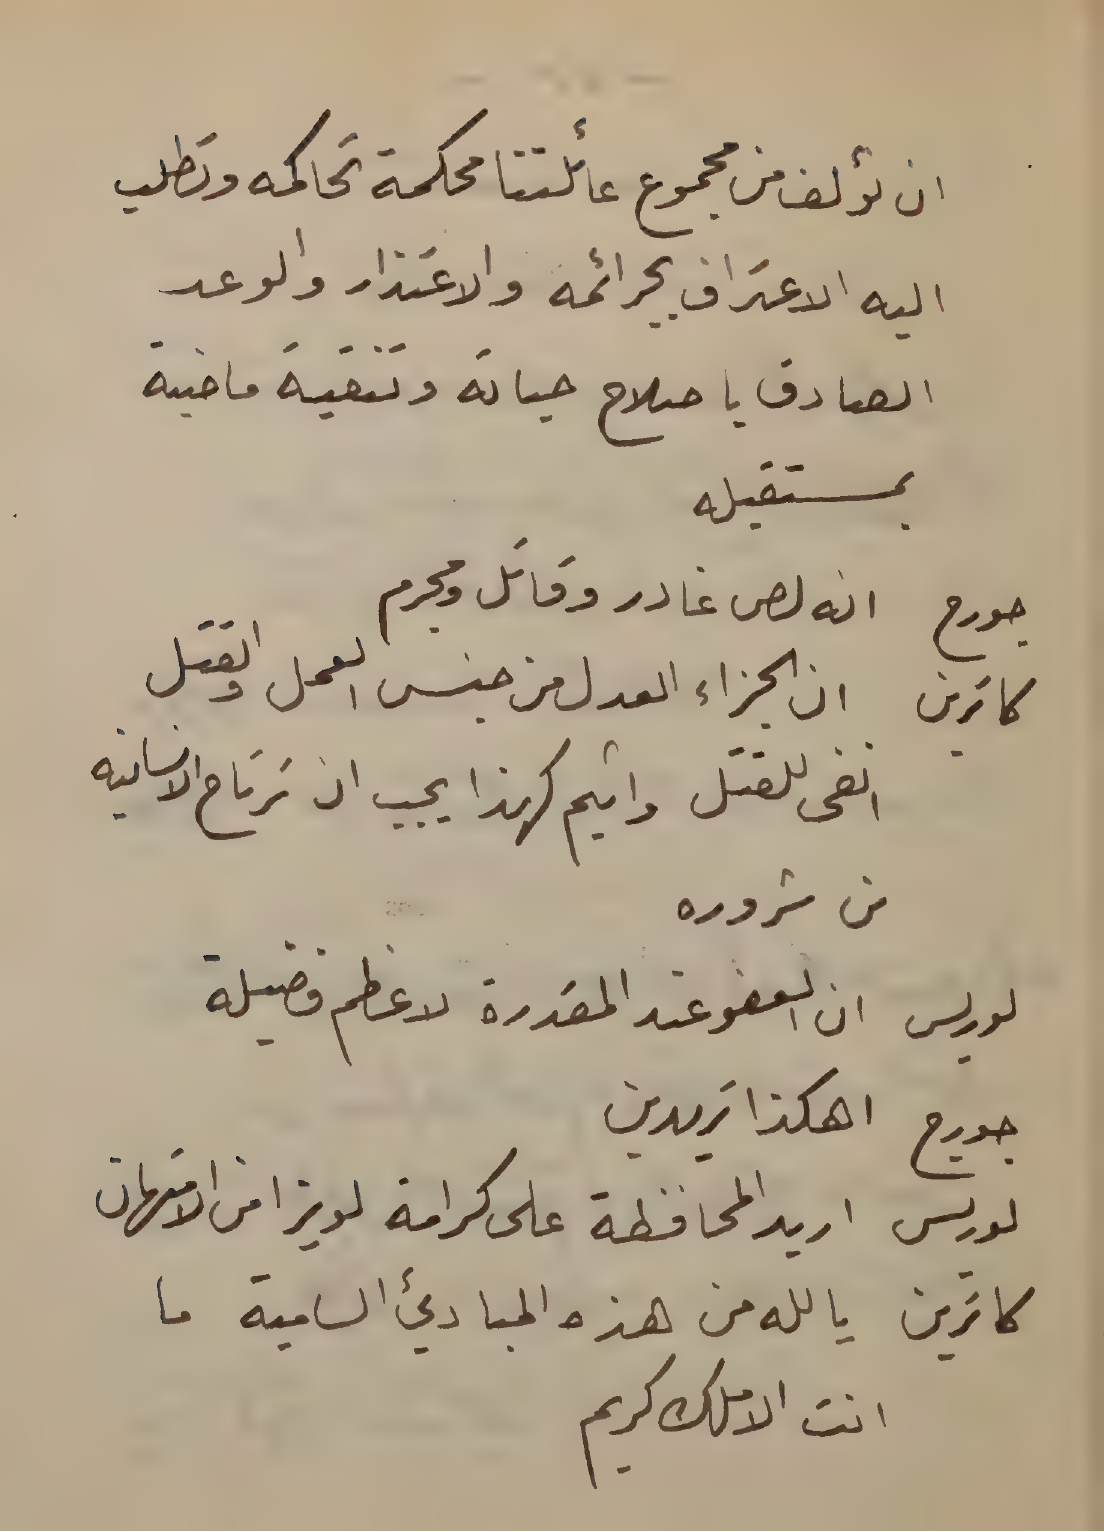 ان نؤلف من مجموع عائلتنا محكمة تحاكمه وتطلب
اليه الاعتراف بجرائمه والاعتذار والوعد
الصادق باصلاح حياته وتنقية ماضيه
بمستقبله
جورج انه لص غادر وقاتل ومجرم
كاترين ان الجزاء العدل من جنس العمل والقتل
انفى للقتل واثيم كهذا يجب ان ترتاح الانسانيه
من شروره
لوريس ان العفو عند المقدرة لاعظم فضيلة
جورج اهكذا تريدين
لوريس اريد المحافظة على كرامة لويزا من الامتهان
كاترين يالله من هذه المبادئ السامية ما
انت الا ملك كريم